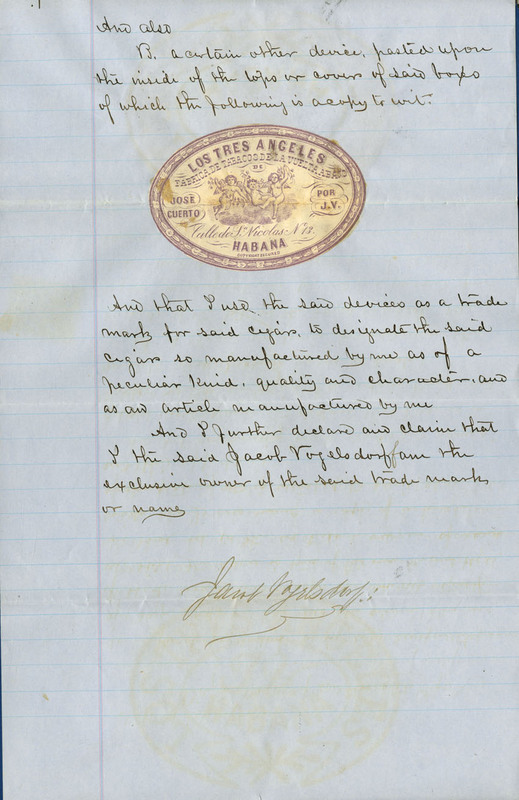 And also
B. a certain other device, pasted upon
the inside of the tops or cover of said boxes
of which the following is a copy to wit:
LOS TRES ANGELES
FABRICA DE TABACOS DE LA VUELTA ABAJO
DE
JOSE
CUERTO
POR
J.V.
Calle de Sn. Nicolas No. 72.
HABANA
COPYRIGHT SECURED
And that I use the said devices as a trade
mark for said cigars, to designate the said
cigars so manufactured by me as of a
peculiar kind, quality and character, and
as an article manufactured by me
And I further declare and claim that
I the said Jacob Vogelsdorff am the
exclusive owner of the said trade mark
or name
Jacob Vogelsdorff